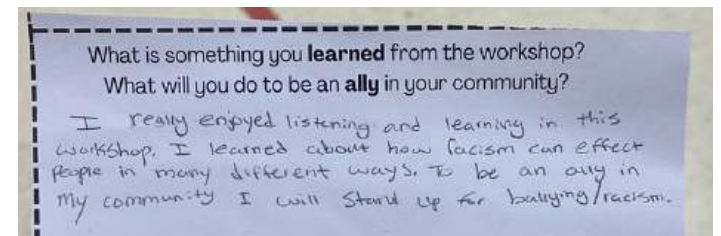 What is something you learned from the workshop?
What will you do to be an ally in your community?
I really enjoyed listening and learning in this
workshop. I learned about how racism can effect
people in many different ways. To be an ally in
my community I will stand up for bullying/racism.